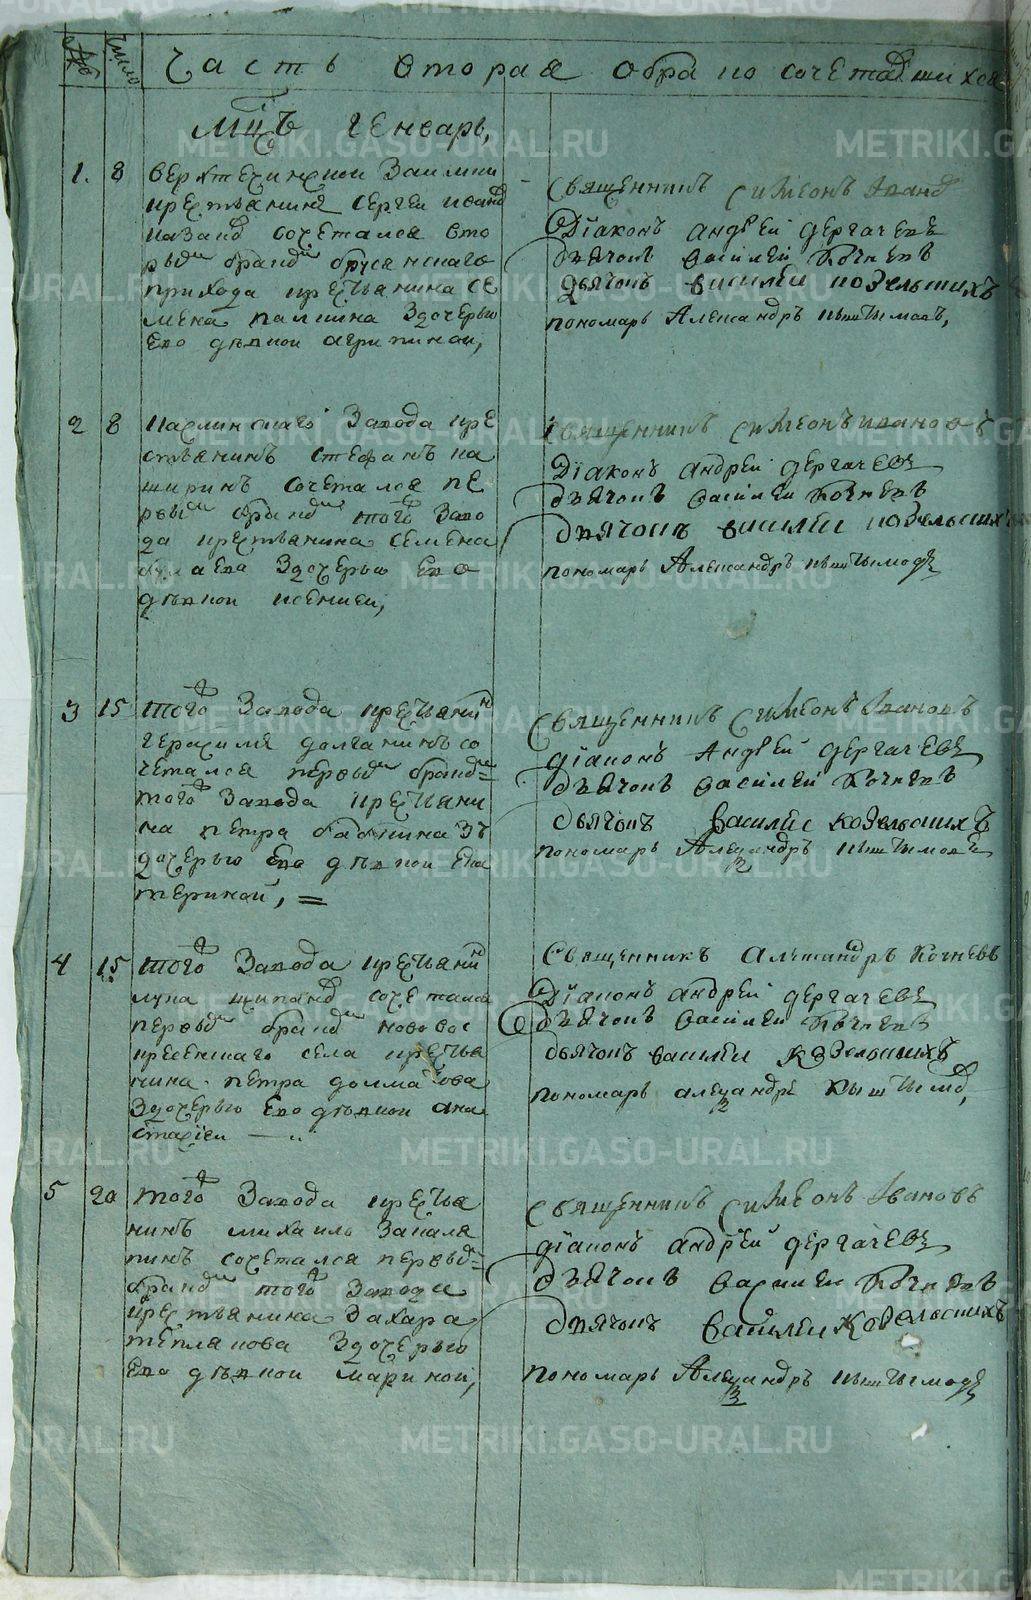 Число
Часть вторая обрако сочетавшихся
Мцъ Генварь,
1. 8
крестьянинъ Сергеи
сочетался вто
рымъ бракомъ
прихода крестьянина Се
мена дочерью
Ево девкои Агрипинои,
Священникъ Симеонъ Иванов
Дїаконъ Андрей Дергачевъ
Дьячокъ Василей Кочневъ
Дьячокъ Василей Козельскихъ
пономарь Александръ Кыштымовъ,
2 8
Каслинскаго Завода кре
стьянинъ Стефанъ Ка
ширинъ сочетался пе
рвымъ бракомъ того Заво
да крестьянина Семена
Здочерью Ево
девкои Ксениеи,
Священникъ Симеонъ Ивановъ
Дїаконъ Андрей Дергачевъ
Дьячокъ Василей Кочневъ
Дьячокъ Василей Козельскихъ
пономарь Александръ Кыштымовъ
3 15
того Завода крестьянин
Герасимъ Долганинъ со
четался первымъ бракомъ
того Завода крестьяни
на Петра Бабкина зъ
дочерью Ево девкои Ека
териной,
Священникъ Симеонъ Ивановъ
Дїаконъ Андрей Дергачевъ
Дьячокъ Василей Кочневъ
Дьячокъ Василей Козельскихъ
пономарь Александръ Кыштымовъ
4 15
того Завода крестьянин
Лука сочетался
первымъ бракомъ Нововос
кресенскаго села крестья
нина Петра Долматова
Здочерью Ево девкои Ана
стасїеи
Священникъ Александръ Кочневъ
Дїаконъ Андрей Дергачевъ
Дьячокъ Василей Кочневъ
Дьячокъ Василей Козельскихъ
пономарь Александръ Кыштымов,
5 20
того Завода крестья
нинъ Михаило Запаля
кинъ сочетался первымъ
бракомъ того Завода
крестьянина Захара
Теплякова Здочерью
Ево девкои Мариной,
Священникъ Симеонъ Ивановъ
Дїаконъ Андрей Дергачевъ
Дьячокъ Василей Кочневъ
Дьячокъ Василей Козельскихъ
пономарь Александръ Кыштымовъ
METRIKI.GASO-URAL.RU